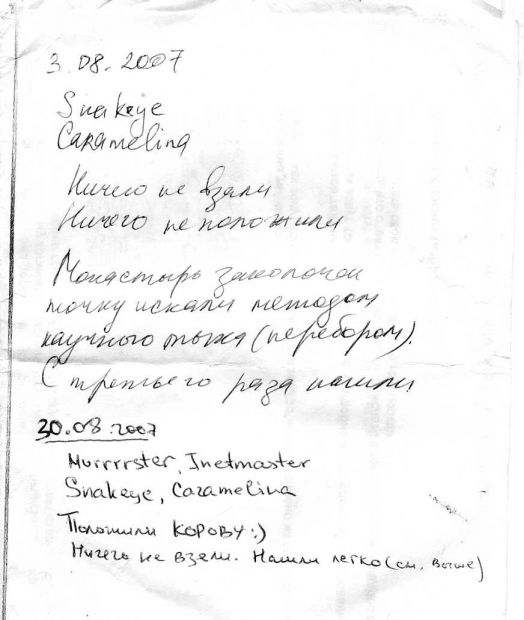 3.08.2007
Snakeye
Caramelina
Ничего не взяли
Ничего не положили
Монастырь заколочен
точку искали методом
научного тыка (перебором).
С третьего раза нашли
30.08.2007
Murrrrster, Inetmaster
Snakeye, Caramelina
Положили КОРОВУ:)
Ничего не взяли. Нашли легко (см. выше)